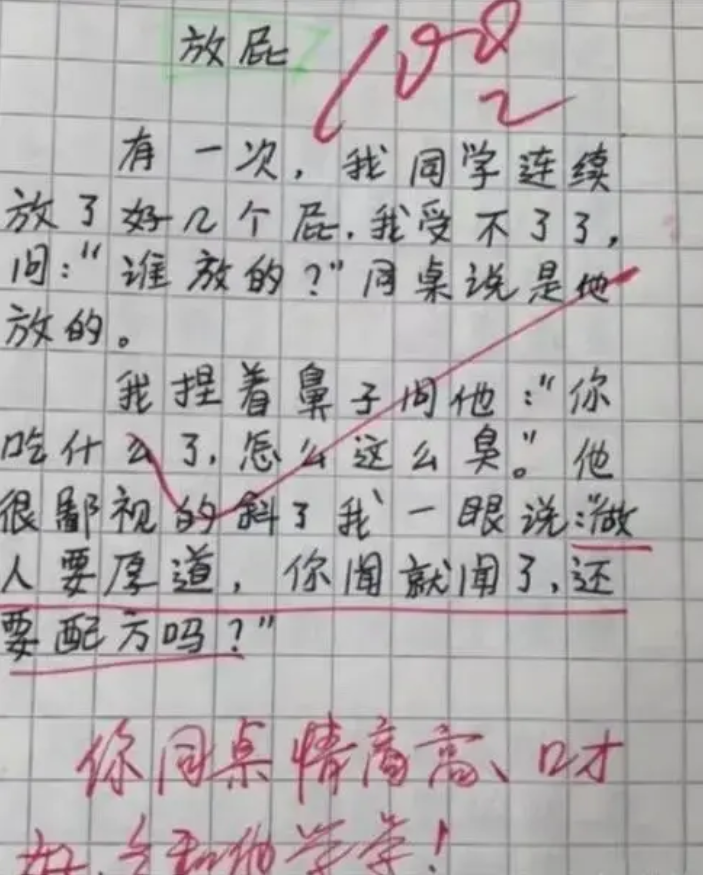 放屁
100
有一次，我同学连续
放了好几个屁.我受不了了，
问：“谁放的？”同桌说是他
放的。
我捏着鼻子问他：“你
吃什么了，怎么这么臭。”他
很鄙视的斜了我一眼说：“做
人要厚道，你闻就闻了，还
要配方吗？”
你同桌情商高、口才
好，多和他学学！